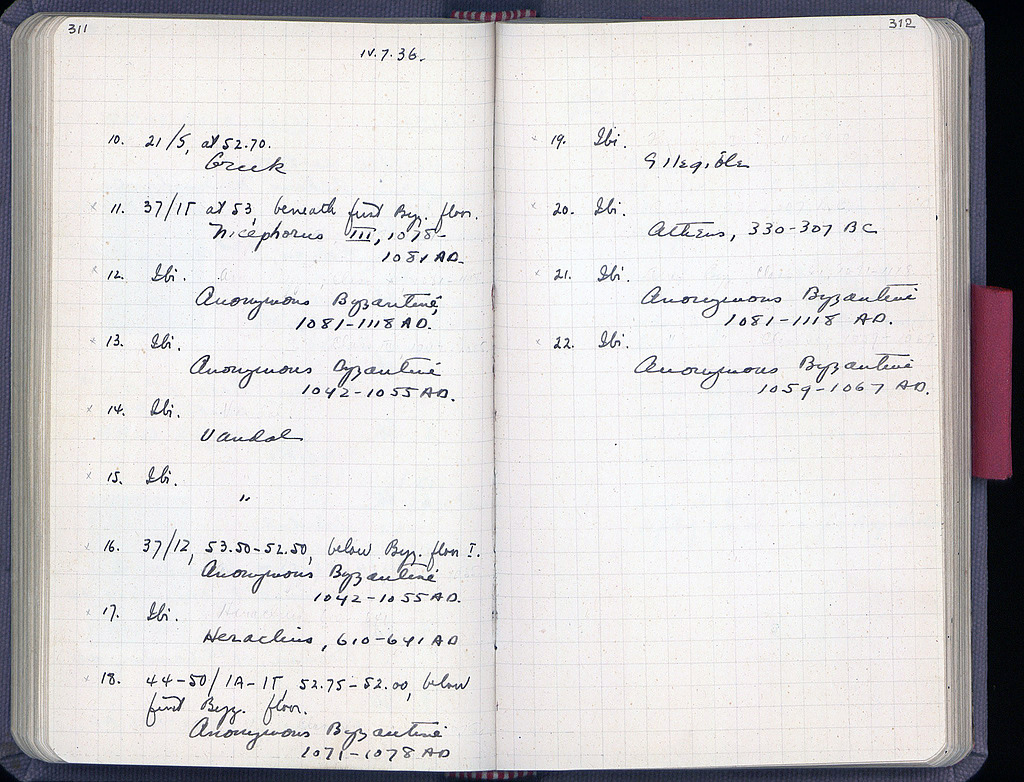 311
IV.7.36.
10. 21/5, at 52.70.
Greek
11. 37/ΙΓ at 53, beneath first Byz. floor.
Nicephorus III, 1078-
1081 AD.
12. Ibi.
Anonymous Byzantine,
1081-1118 AD.
13. Ibi.
Anonymous Byzantine
1042-1055 AD.
14. Ibi.
Vandal
15. Ibi.
"
16. 37/12, 53.50-52.50, below Byz. floor I.
Anonymous Byzantine
1042-1055 AD.
17. Ibi.
Heraclius, 610-641 AD
18. 44-50/ΙΑ-ΙΓ, 52.75-52.00, below
first Byz. floor.
Anonymous Byzantine
1071-1078 AD
312
19. Ibi.
Illegible
20. Ibi.
Athens, 330-307 BC
21. Ibi.
Anonymous Byzantine
1081-1118 AD.
22. Ibi.
Anonymous Byzantine
1059-1067 AD.